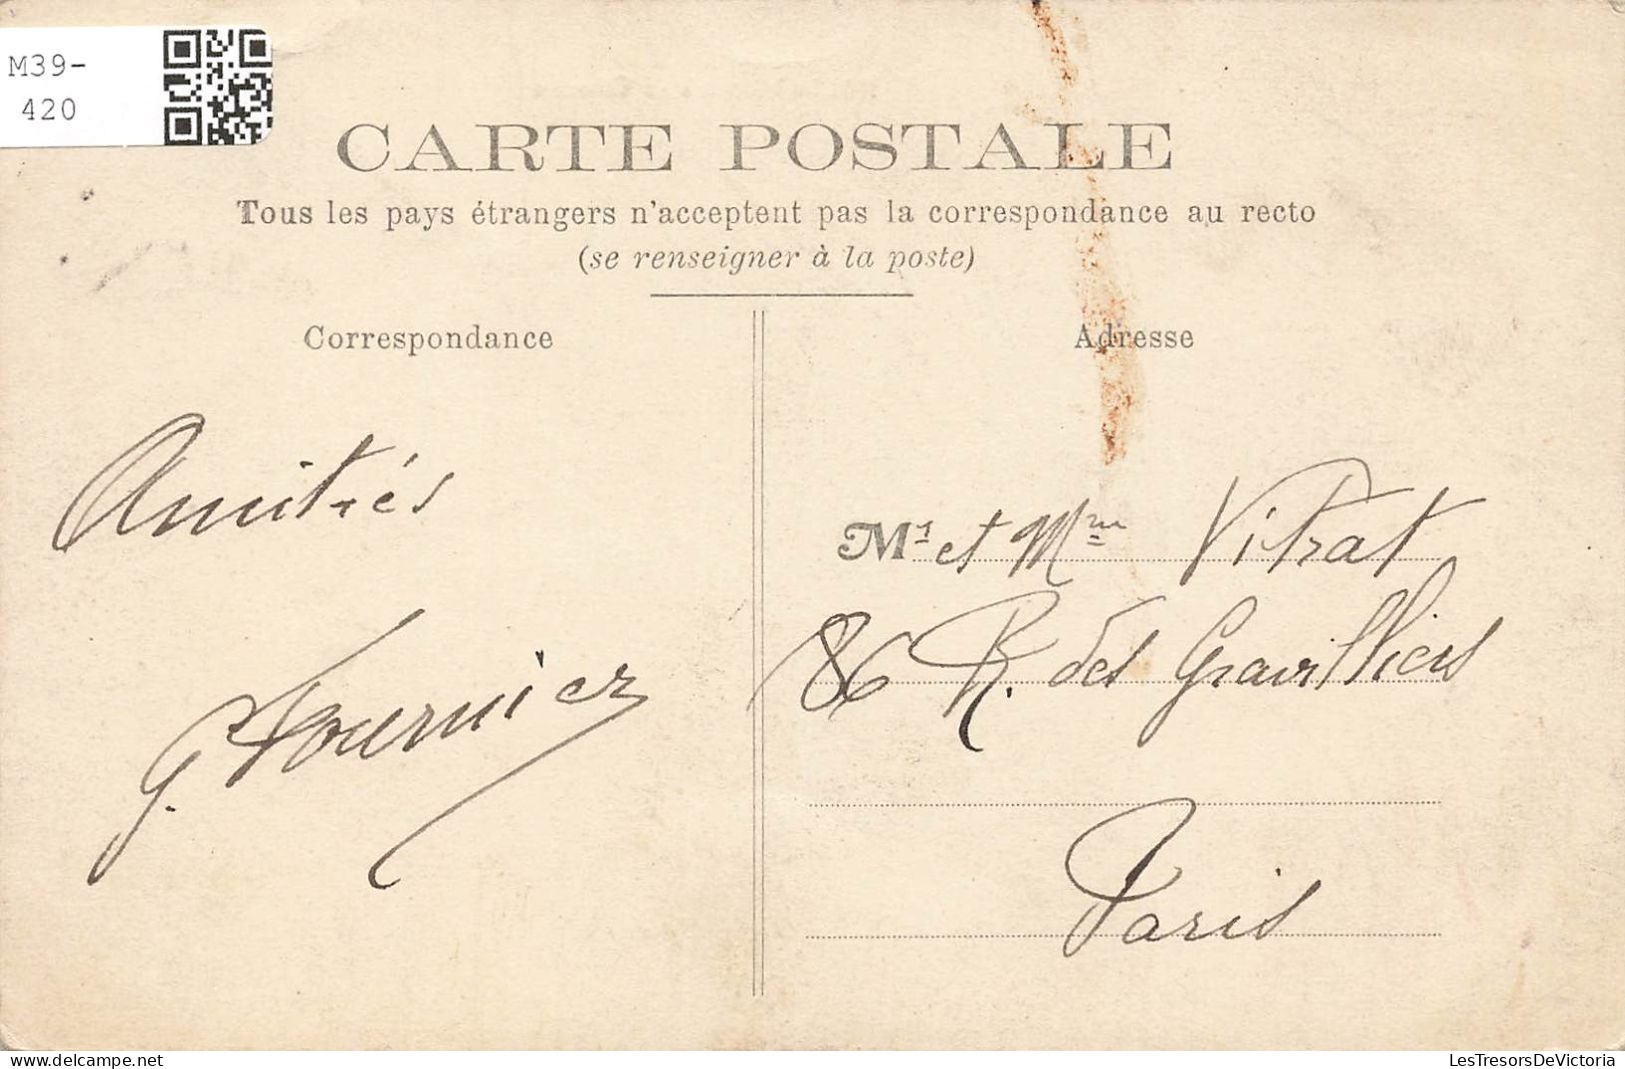 M39-
420
CARTE POSTALE
Tous les pays étrangers n'acceptent pas la correspondance au recto
(se renseigner à la poste)
Correspondance
Adresse
Amitiés
G. Fournier
M r et Mme Vitrat
86 R. des Gravilliers
Paris
delcampe.net
LesTresorsDeVictoria